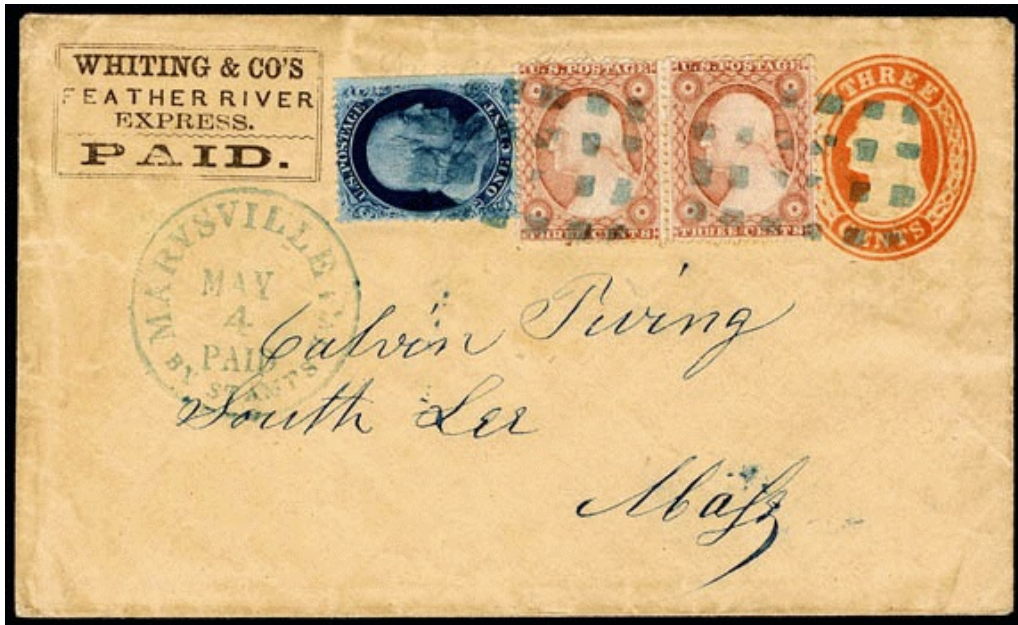 WHITING & CO'S
FEATHER RIVER
EXPRESS.
PAID.
U.S. POSTAGE
ONE CENT
U.S. POSTAGE
THREE CENTS
U.S. POSTAGE
THREE CENTS
THREE
CENTS
MARYSVILLE
MAY
4
PAID
BY STAMPS
Calvin Twing
South Lee
Mass